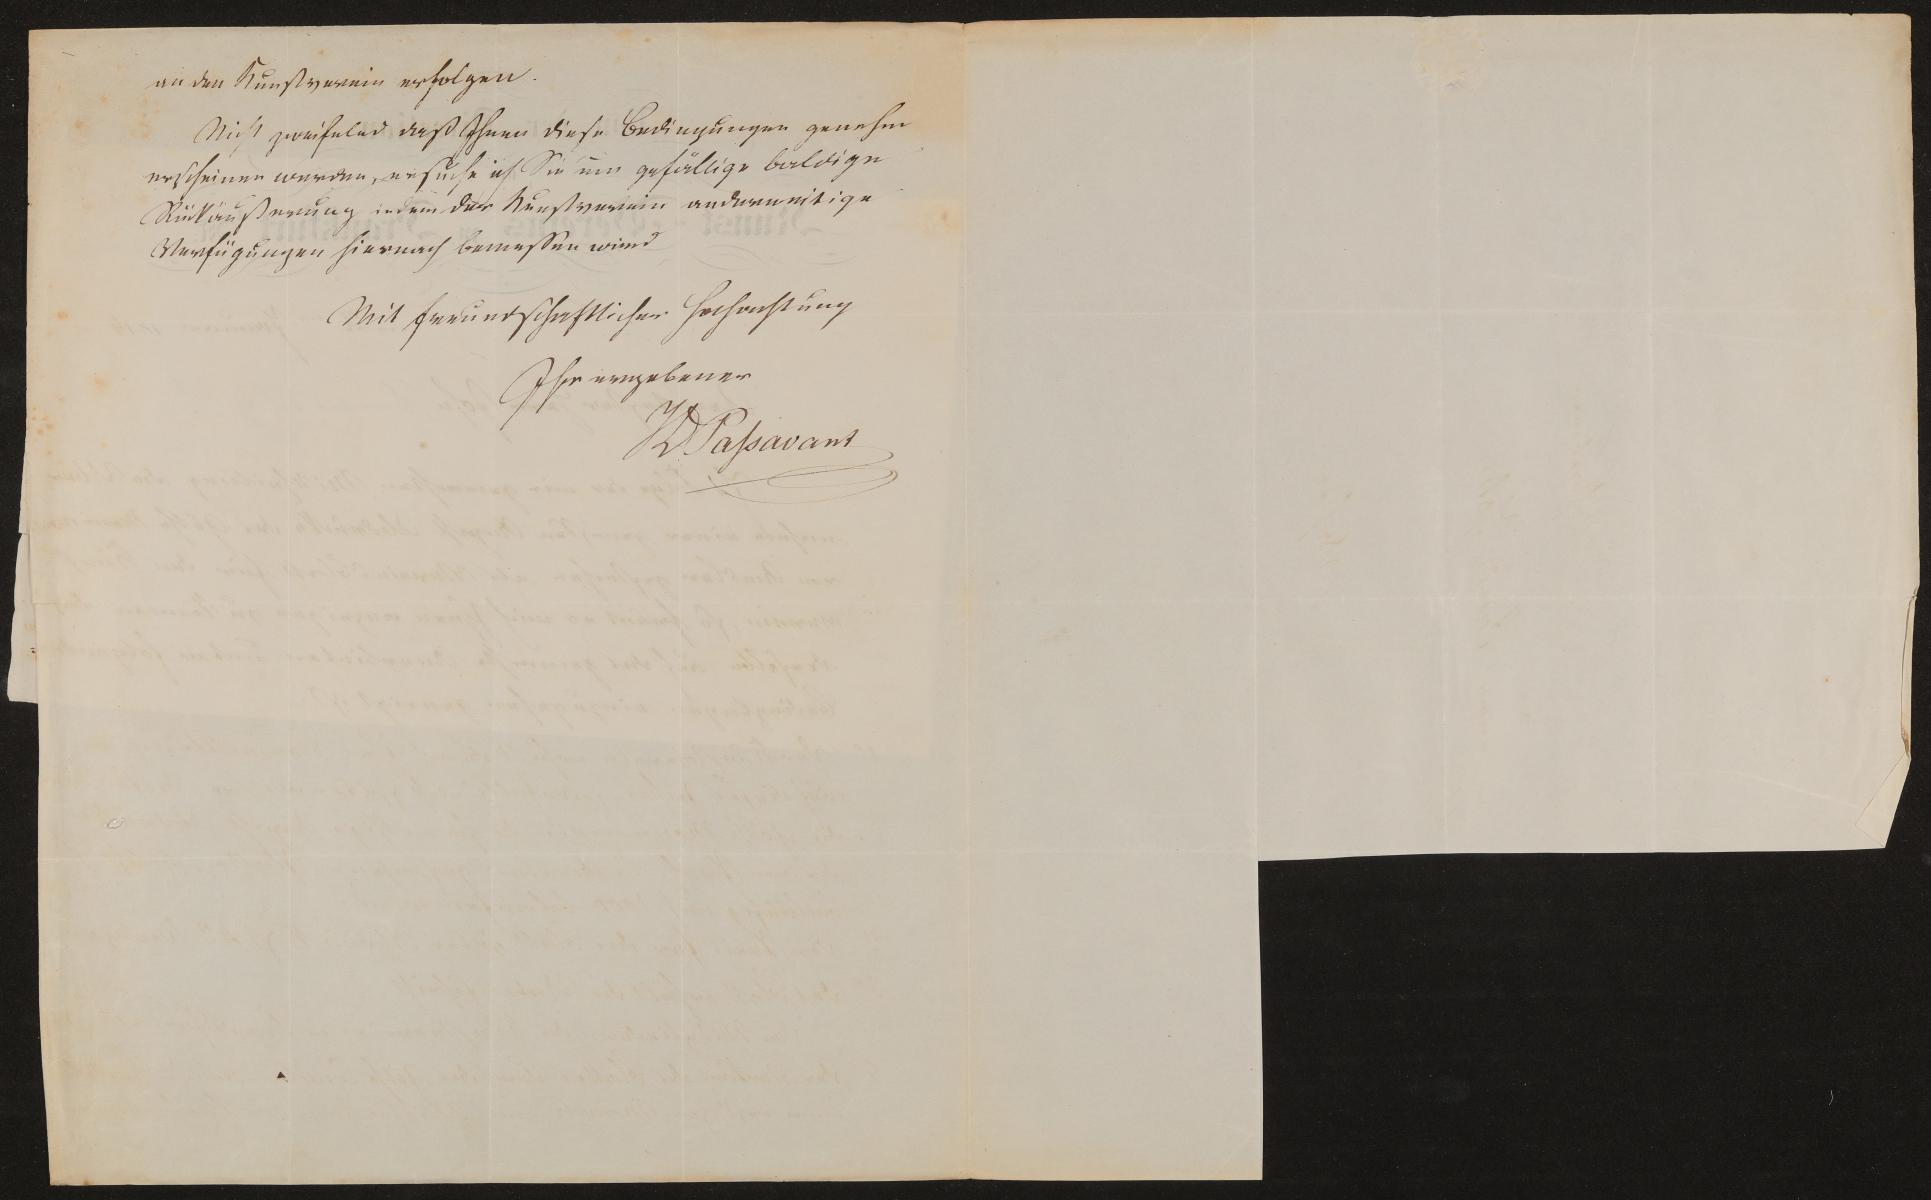 an den Kunstverein erfolgen.
Nicht zweifelnd daß Ihnen diese Bedingungen genehm
erscheinen werden, ersuche ich Sie um gefällige baldige
Rückäußerung indem der Kunstverein anderweitige
Verfügungen hiernach bemessen wird
Mit freundschaftlicher Hochachtung
Ihr ergebener
Paſsavant